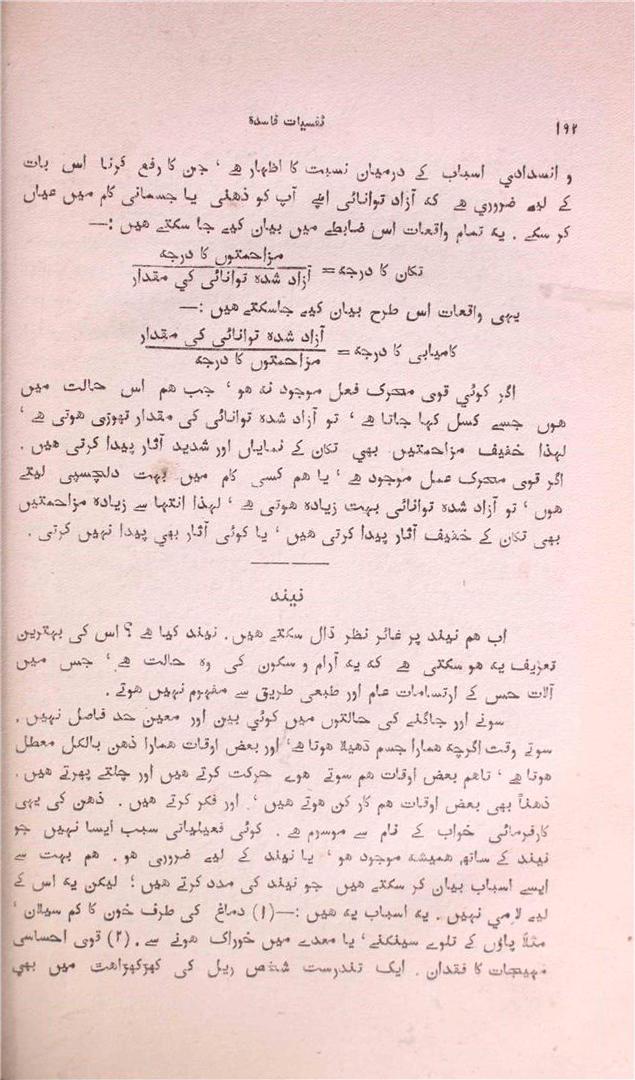 نفسیات فاسدہ
۱۹۲
و انسدادي اسباب کے درمیان نسبت کا اظہار ہے ' جن کا رفع کرنا اس بات
کے لیے ضروري ہے کہ آزاد توانائی اپنے آپ کو ذہنی یا جسمانی کام میں عیاں
کر سکے . یہ تمام واقعات اس ضابطے میں بیان کیے جا سکتے ہیں :—
تکان کا درجہ = مزاحمتوں کا درجہ / آزاد شدہ توانائی کي مقدار
یہی واقعات اس طرح بیان کیے جاسکتے ہیں :—
کامیابی کا درجہ = آزاد شدہ توانائی کی مقدار / مزاحمتوں کا درجہ
اگر کوئي قوی محرک فعل موجود نہ ہو ' جب ہم اس حالت میں
ہوں جسے کسل کہا جاتا ہے ' تو آزاد شدہ توانائی کی مقدار تھوڑی ہوتی ہے '
لہذا خفیف مزاحمتیں بھي تکان کے نمایاں اور شدید آثار پیدا کرتی ہیں .
اگر قوی محرک عمل موجود ہے ' یا ہم کسی کام میں بہت دلچسپی لیتے
ہوں ' تو آزاد شدہ توانائی بہت زیادہ ہوتی ہے ' لہذا انتہا سے زیادہ مزاحمتیں
بھی تکان کے خفیف آثار پیدا کرتی ہیں ' یا کوئی آثار بھی پیدا نہیں کرتی .
نیند
اب ہم نیند پر غائر نظر ڈال سکتے ہیں . نیند کیا ہے ؟ اس کی بہترین
تعریف یہ ہو سکتی ہے کہ یہ آرام و سکون کی وہ حالت ہے ' جس میں
آلات حس کے ارتسامات عام اور طبعی طریق سے مفہوم نہیں ہوتے .
سونے اور جاگنے کی حالتوں میں کوئي بین اور معین حد فاصل نہیں .
سوتے وقت اگرچہ ہمارا جسم ڈھیلا ہوتا ہے ' اور بعض اوقات ہمارا ذہن بالکل معطل
ہوتا ہے ' تاہم بعض اوقات ہم سوتے ہوے حرکت کرتے ہیں اور چلتے پھرتے ہیں .
ذہناً بھی بعض اوقات ہم کار کن ہوتے ہیں ' اور فکر کرتے ہیں . ذہن کی یہی
کارفرمائی خواب کے نام سے موسوم ہے . کوئی فعیلیاتی سبب ایسا نہیں جو
نیند کے ساتھ ہمیشہ موجود ہو ' یا نیند کے لیے ضروری ہو . ہم بہت سے
ایسے اسباب بیان کر سکتے ہیں جو نیند کی مدد کرتے ہیں ؛ لیکن یہ اس کے
لیے لازمي نہیں . یہ اسباب یہ ہیں :—(۱) دماغ کی طرف خون کا کم سیلان '
مثلاً پاؤں کے تلوے سینکنے ' یا معدے میں خوراک ہونے سے . (۲) قوی احساسی
مہیجات کا فقدان . ایک تندرست شخص ریل کی کھڑکھڑاہٹ میں بھی